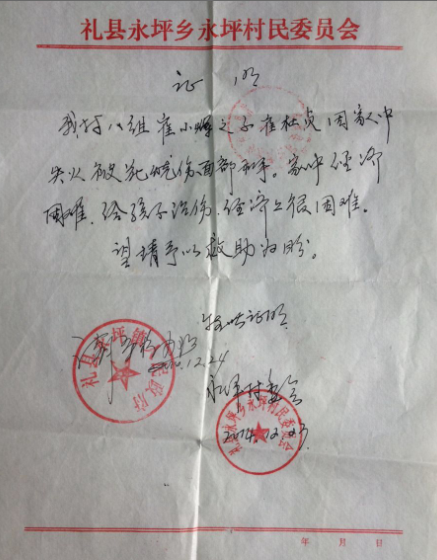 礼县永坪乡永坪村民委员会
证明
我村八组崔小辉之子崔杜贞因家中
失火被无情烧伤面部和手。家中经济
困难，给孩子治伤，经济上很困难。
望请予以救助为盼。
特此证明
礼县永坪镇人民政府
12.24
永坪村委会
礼县永坪乡永坪村民委员会
2014.12.23
年 月 日